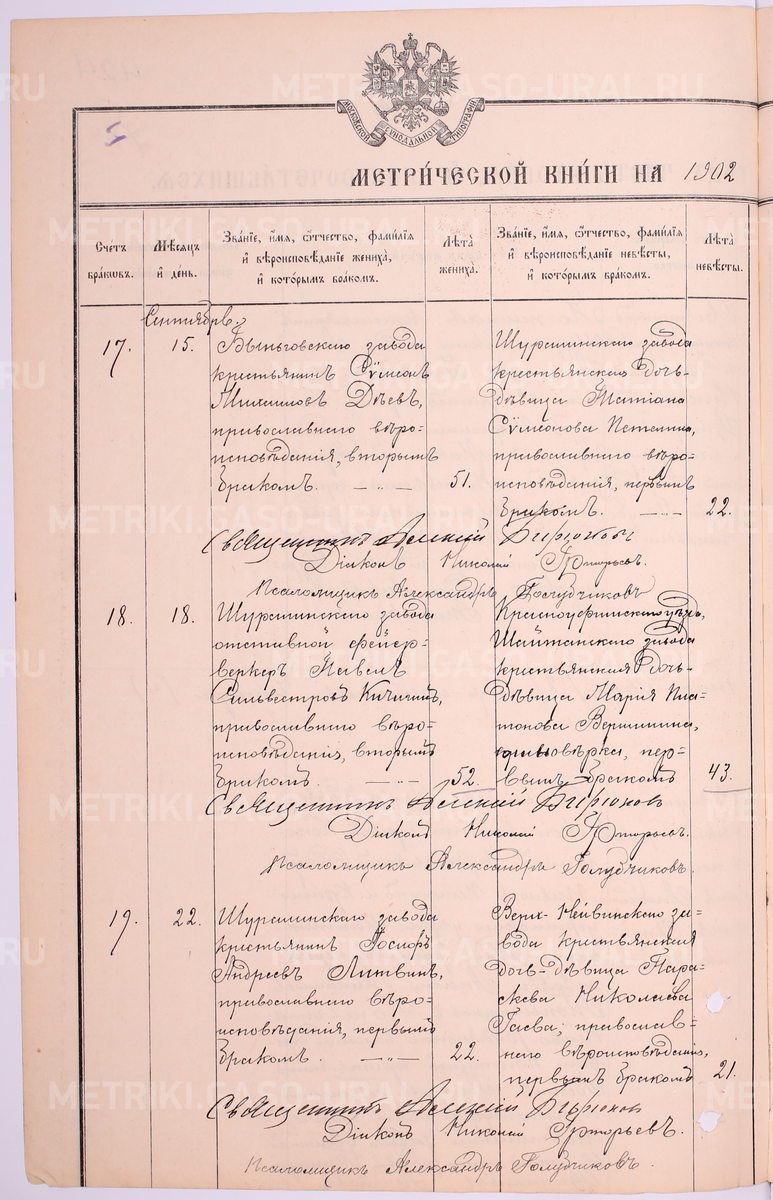 МОСКОВСКОЙ СѴНОДАЛЬНОЙ ТИПОГРАФІИ
5
МЕТРИ́ЧЕСКОЙ КНИ́ГИ НА 1902
Счетъ бра́ковъ.
Мѣ́сяцъ и҆ де́нь.
Зва́нїе, и҆́мя, ѻ҆́тчество, фами́лїя и҆ вѣроисповѣ́данїе жениха̀, и҆ кото́рымъ бра́комъ.
Лѣ́та жениха̀.
Зва́нїе, и҆́мя, ѻ҆́тчество, фами́лїя и҆ вѣроисповѣ́данїе невѣ́сты, и҆ кото́рымъ бра́комъ.
Лѣ́та невѣ́сты.
Сентябрь.
17.
15.
Быньговскаго завода
крестьянинъ Сѵмеонъ
Михаиловъ Дѣевъ,
православнаго вѣро-
исповѣданія, вторымъ
бракомъ. — „ —
51.
Шуралинскаго завода
крестьянская дочь-
дѣвица Татіана
Сѵмеонова Петелина,
православнаго вѣро-
исповѣданія, первымъ
бракомъ. — „ —
22.
Священникъ Алексій Бирюковъ
Діаконъ Николай Григорьевъ.
Псаломщикъ Александръ Голубчиковъ
18.
18.
Шуралинскаго завода
отставной фейер-
веркеръ Павелъ
Сильвестровъ Кичигинъ,
православнаго вѣро-
исповѣданія, вторымъ
бракомъ. — „ —
52.
Красноуфимскаго уѣзда,
Шайтанскаго завода
крестьянская дочь-
дѣвица Марія Пла-
тонова Вершинина,
единовѣрка, пер-
вымъ бракомъ
43.
Священникъ Алексій Бирюковъ
Діаконъ Николай Григорьевъ.
Псаломщикъ Александръ Голубчиковъ.
19.
22.
Шуралинскаго завода
крестьянинъ Іосифъ
Андреевъ Литвинъ,
православнаго вѣро-
исповѣданія, первымъ
бракомъ. — „ —
22.
Верх-Нейвинскаго за-
вода крестьянская
дочь-дѣвица Пара-
скева Николаева
Гаева; православ-
наго вѣроисповѣданія,
первымъ бракомъ
21.
Священникъ Алексій Бирюковъ
Діаконъ Николай Григорьевъ.
Псаломщикъ Александръ Голубчиковъ.
METRIKI.GASO-URAL.RU